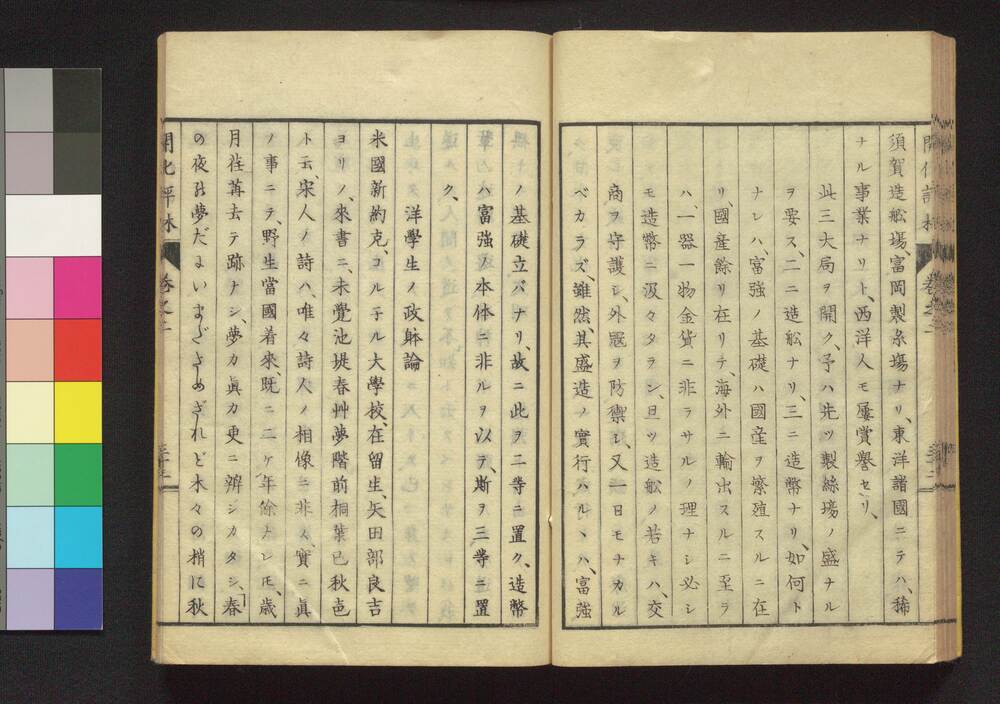 須賀造舩塲、富岡製糸塲ナリ、東洋諸國ニテハ、稀
ナル事業ナリト、西洋人モ屢賞譽セリ、
此三大局ヲ開ク、予ハ先ツ製絲塲ノ盛ナル
ヲ要ス、二ニ造舩ナリ、三ニ造幣ナリ、如何ト
ナレハ、富強ノ基礎ハ國産ヲ繁殖スルニ在
リ、國産餘リ在リテ、海外ニ輸出スルニ至ラ
ハ、一器一物金貨ニ非ラサルノ理ナシ必シ
モ造幣ニ汲々タラン、且ツ造舩ノ若キハ、交
商ヲ守護シ、外寇ヲ防禦シ、又一日モナカル
ベカラズ、雖然、其盛造ノ實行ハルヽハ、富強
ノ基礎立バナリ、故ニ此ヲ二等ニ置ク、造幣
ハ富強ノ本体ニ非ルヲ以テ、斯ヲ三等ニ置
ク、
洋學生ノ政躰論
米國新約克、コル子ル大學校、在留生、矢田部良吉
ヨリノ、來書ニ、未覺池堤春艸夢階前梧葉已秋色
ト云、宋人ノ詩ハ、唯々詩人ノ相像ニ非ス、實ニ眞
ノ事ニテ、野生當國着來、既ニ二ケ年餘トレモ、歳
月徃苒去テ跡ナシ、夢カ眞カ更ニ辨シカタシ、「春
の夜の夢だよいまださめざれど木々の梢に秋
開化評林
卷之二